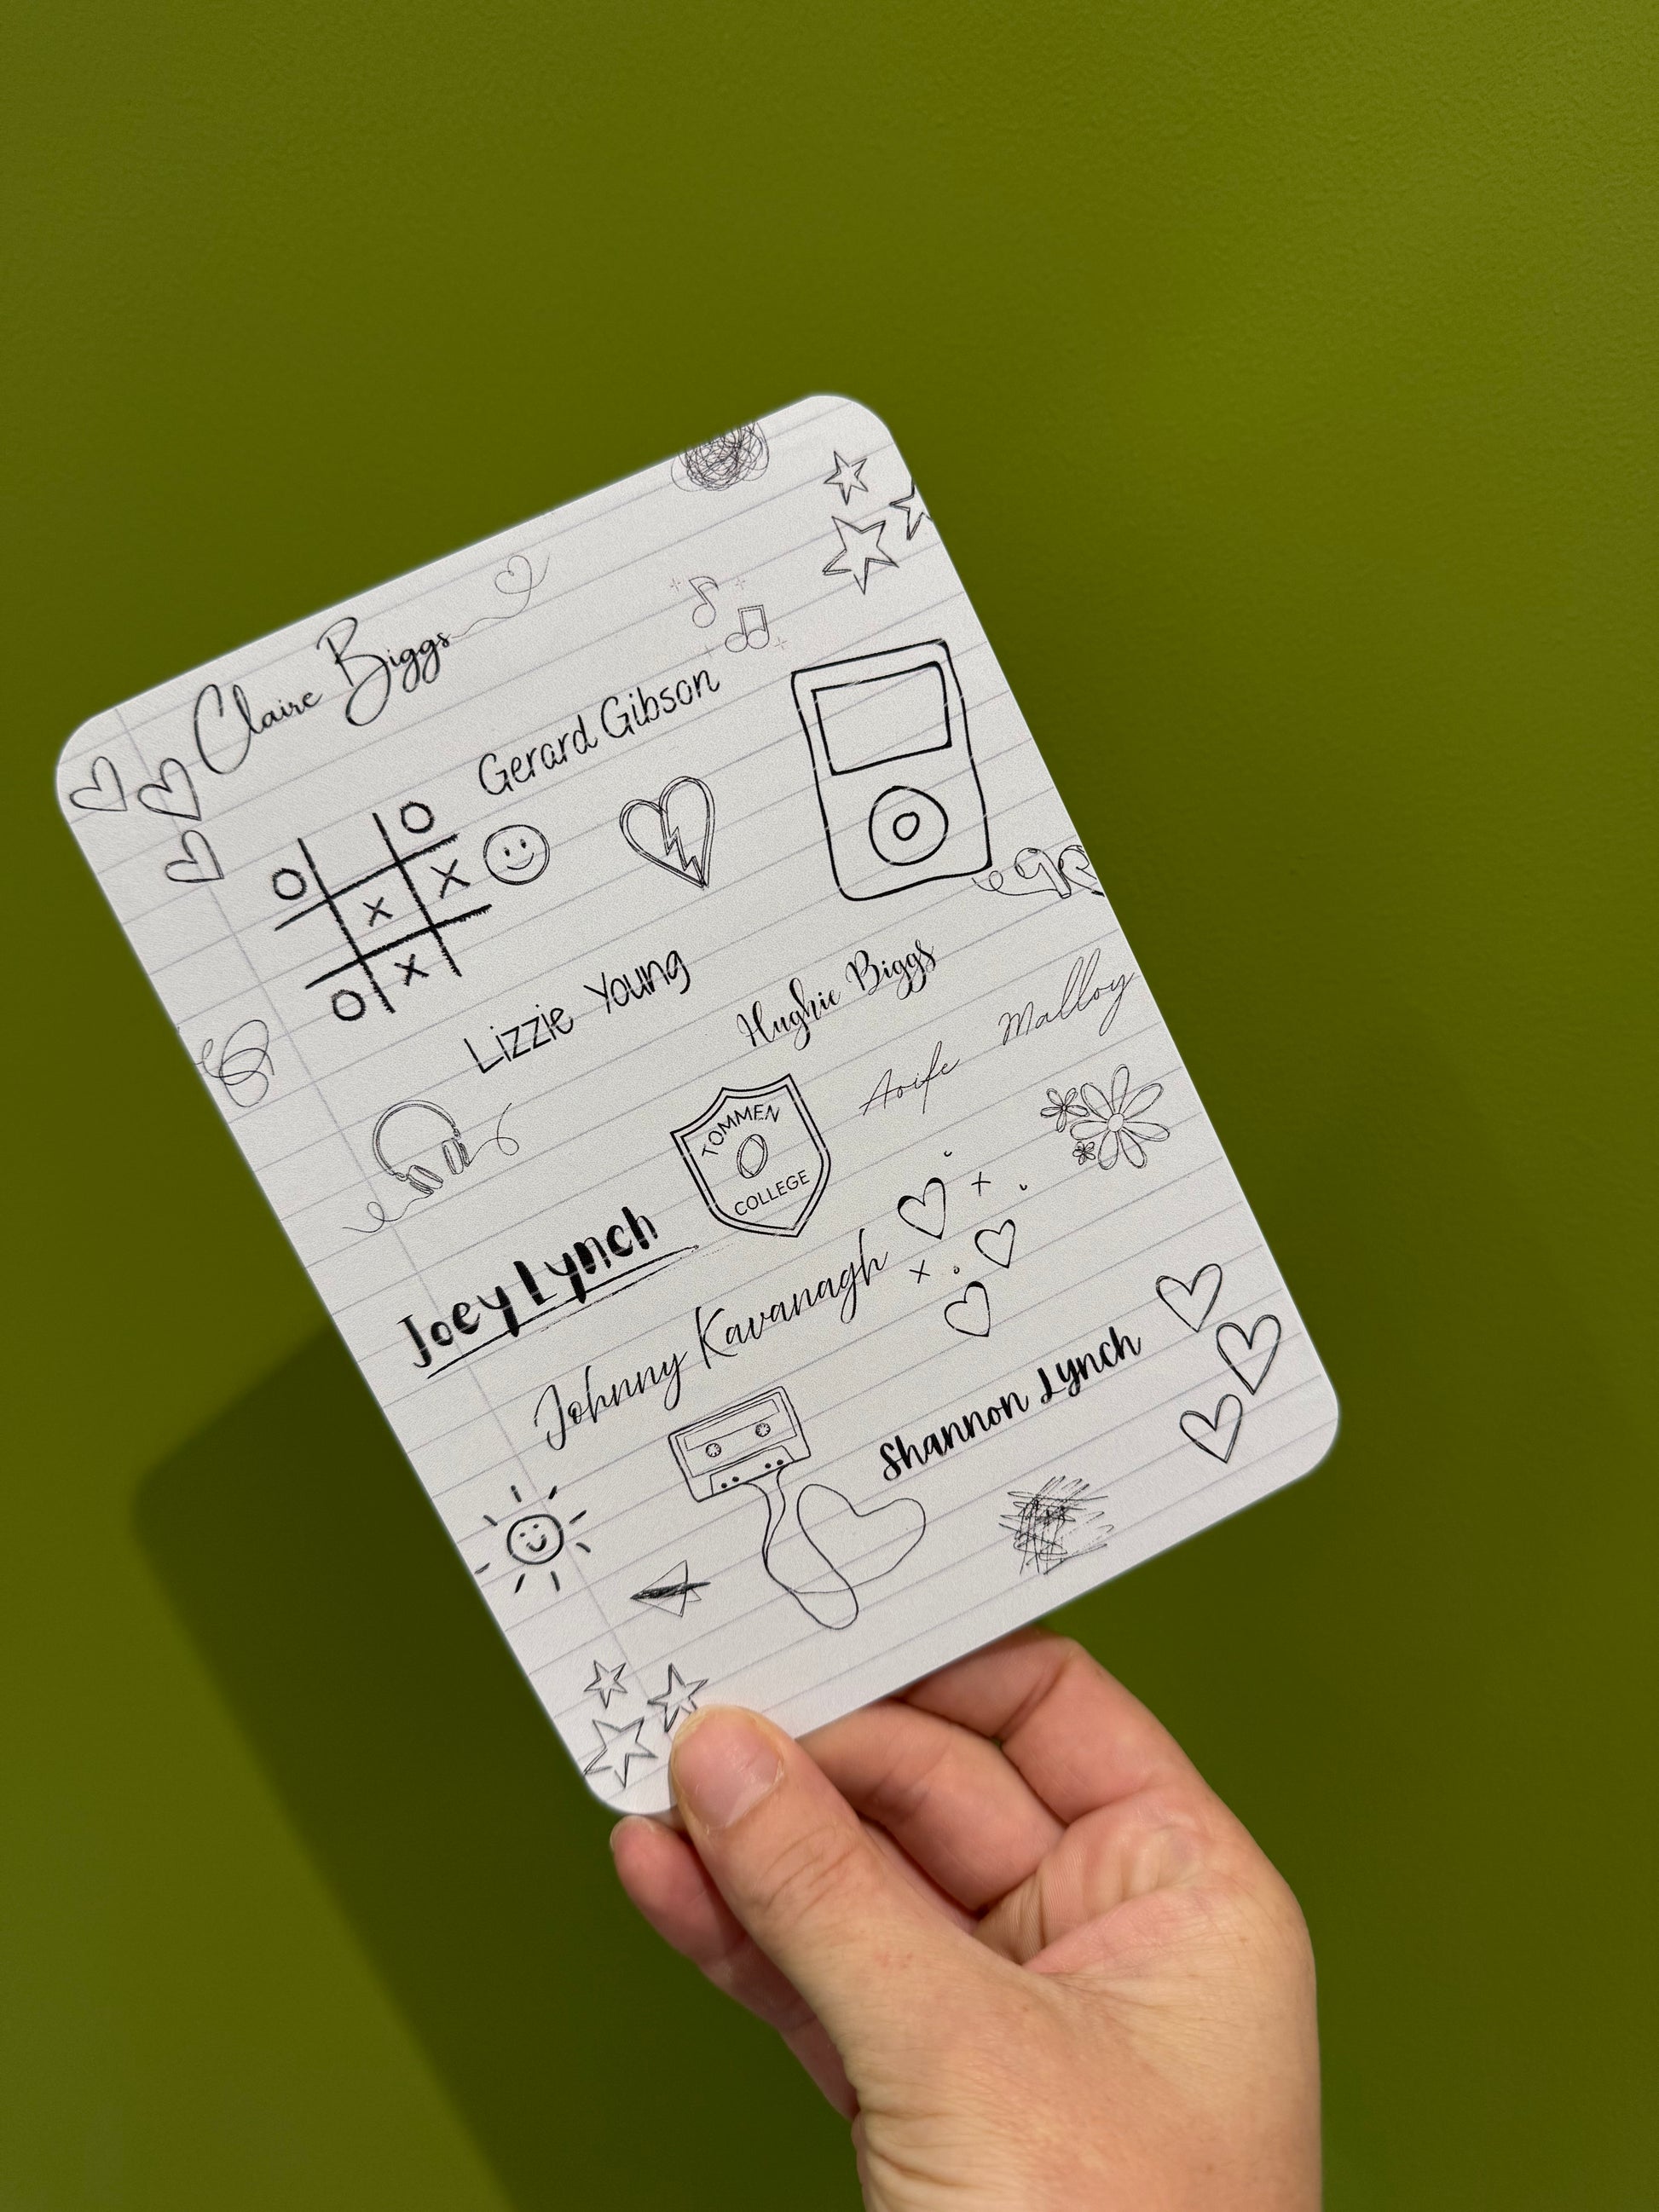 Claire Biggs
Gerard Gibson
O
O
X
X
X
O
Lizzie Young
Hughie Biggs
Aoife Malloy
TOMMEN
COLLEGE
Joey Lynch
Johnny Kavanagh
x
x
Shannon Lynch